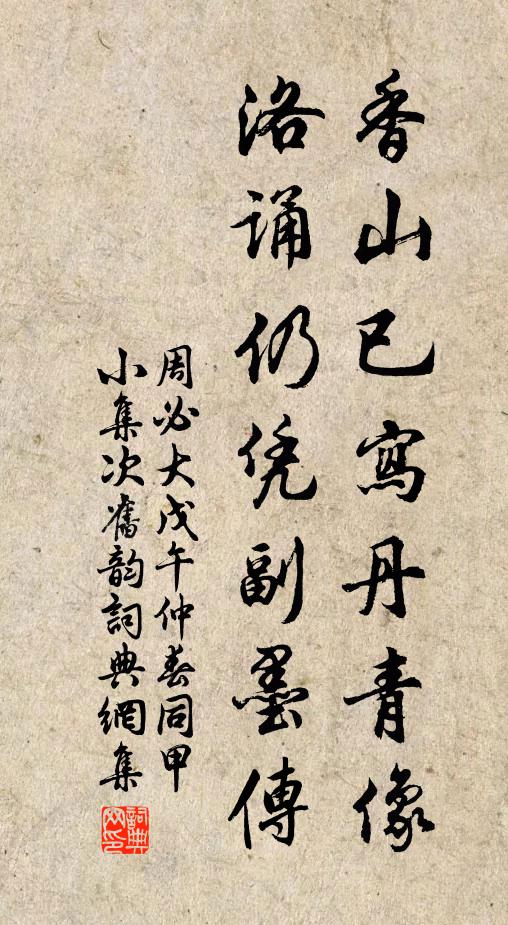 香山已寫丹青像
洛誦仍凭副墨傳
周必大戊午仲春同甲
小集次舊韵詞典網集
詞典網印